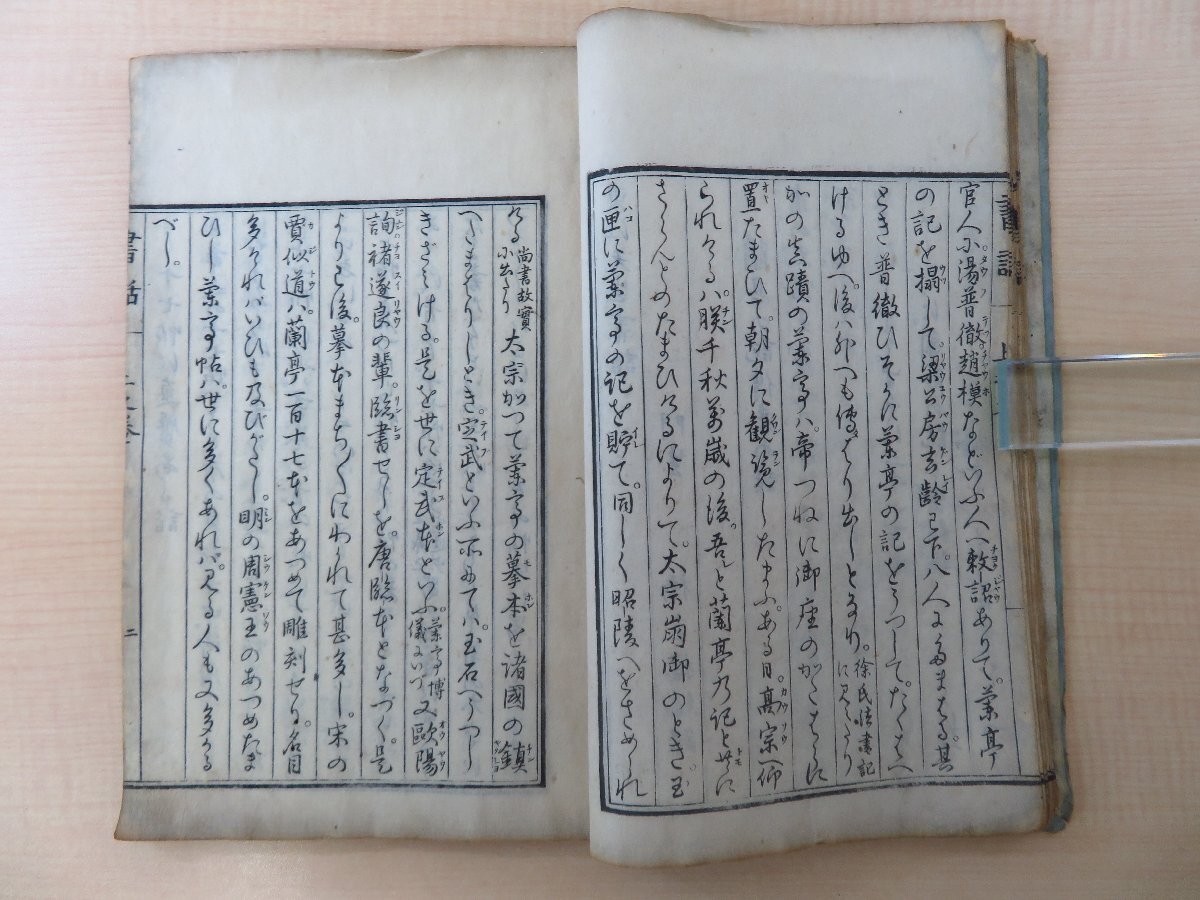 官人小湯普徹趙模などいふ人へ勅詔ありて。蘭亭
の記を搨して。梁公房玄齢已下。八人にたまはる。其
とき普徹ひそかに蘭亭の記をうつして。たくはへ
けるゆへ。後ハ外へも傳はり出しとなり。徐氏法書記に見へたり
かの真蹟の蘭亭ハ。帝つねに御座のかたはらに
置たまひて。朝夕に観覧したまふ。ある日。高宗へ仰
られけるハ。朕千秋萬歳の後。吾と蘭亭乃記と共に
さらんとのたまひけるによりて。太宗崩御のとき。玉
の匣に蘭亭の記を貯て。同しく昭陵へをさめられ
ける尚書故實に出たり 太宗かつて蘭亭の摹本を諸國の鎮
へたまはりしとき。定武といふ所にてハ。玉石へうつし
きざみける。是を世に定武本といふ。蘭亭博儀にいづ 又歐陽
詢褚遂良の輩。臨書せしを。唐臨本となづく。是
より已後。摹本まち〱にわかれて甚多し。宋の
賈似道ハ。蘭亭一百十七本をあつめて雕刻せり。名目
多けれバいひも及びがたし。明の周憲王のあつめたま
ひし 蘭亭帖ハ。世に多くあれバ。見る人も又多かる
べし。
書話
上之巻
二